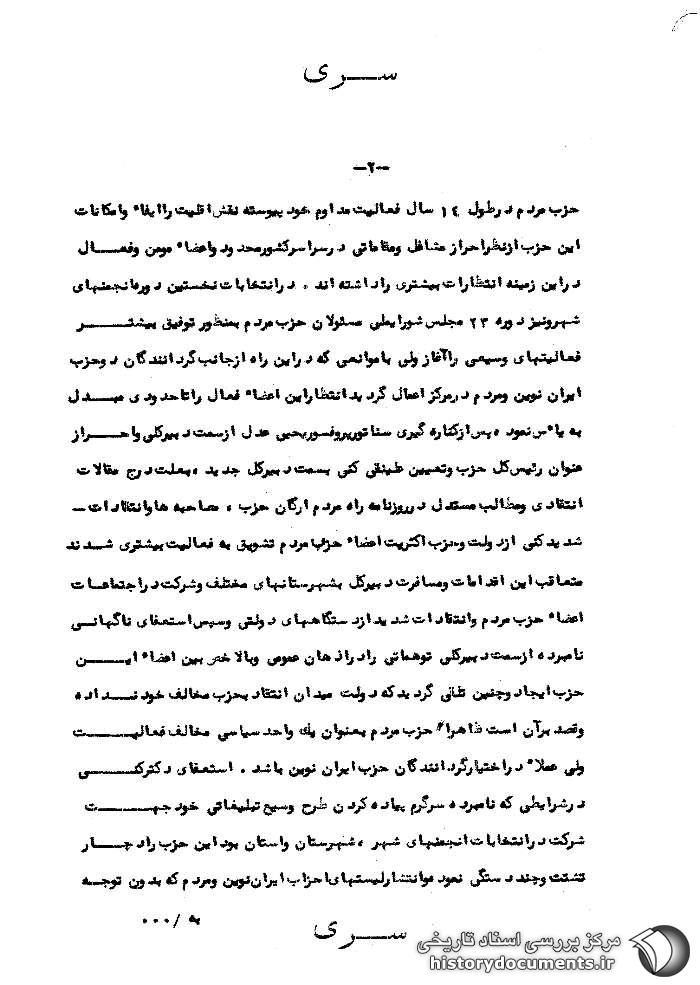 ســری
-۲-
حزب مردم در طول ۱۴ سال فعالیت مداوم خود پیوسته نقش اقلیت را ایفاء وامکانات
این حزب ازنظراحراز مشاغل ومقاماتی در سراسر کشور محدود واعضاء مومن وفعـــال
دراین زمینه انتظارات بیشتری راداشته اند ، درانتخابات نخستین دوره انجمنهای
شهرونیز دوره ۲۳ مجلس شورایملی مسئولان حزب مردم بمنظور توفیق بیشتـــر
فعالیتهای وسیعی راآغاز ولی باموانعی که دراین راه ازجانب گردانندگان دوحزب
ایران نوین ومردم درمرکز اعمال گردید انتظاراین اعضاء فعال راتاحدودی مبــدل
به یاءس نمود ،پس ازکناره گیری سناتورپروفسوریحیی عدل ازسمت دبیرکلی واحــراز
عنوان رئیس کل حزب وتعیین علینقی کنی بسمت دبیرکل جدید ،بعلت درج مقالات
انتقادی ومطالب مستدل درروزنامه راه مردم ارگان حزب ، مصاحبه هاوانتقادات -
شدیدکنی ازدولت وحزب اکثریت اعضاء حزب مردم تشویق به فعالیت بیشتری شدند
متعاقب این اقدامات ومسافرت دبیرکل بشهرستانهای مختلف وشرکت دراجتماعات
اعضاء حزب مردم وانتقادات شدید ازدستگاههای دولتی وسپس استعفای ناگهانــی
نامبرده ازسمت دبیرکلی توهماتی رادراذهان عمومی وبالاخص بین اعضاء ایــــن
حزب ایجاد وچنین تلقی گردیدکه دولت میدان انتقاد بحزب مخالف خود نـــداده
وقصد برآن است ظاهرا" حزب مردم بعنوان یک واحد سیاسی مخالف فعالیـــت
ولی عملا" دراختیارگردانندگان حزب ایران نوین باشد . استعفای دکترکنــــی
درشرایطی که نامبرده سرگرم پیاده کردن طرح وسیع تبلیغاتی خود جهــــت
شرکت درانتخابات انجمنهای شهر ،شهرستان واستان بود این حزب رادچـــار
تشتت وچند دستگی نمود وانتشارلیستهای احزاب ایران نوین ومردم که بدون توجــه
به /۰۰۰
ســری
مرکز بررسی اسناد تاریخی
historydocuments.ir